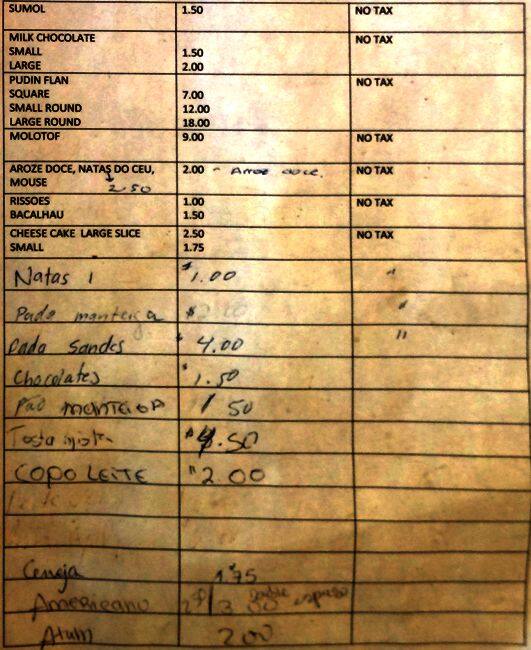 SUMOL 1.50 NO TAX
MILK CHOCOLATE NO TAX
SMALL 1.50
LARGE 2.00
PUDIN FLAN NO TAX
SQUARE 7.00
SMALL ROUND 12.00
LARGE ROUND 18.00
MOLOTOF 9.00 NO TAX
AROZE DOCE, NATAS DO CEU, 2.00 - Arroz doce. NO TAX
MOUSE 2.50
RISSOES 1.00 NO TAX
BACALHAU 1.50
CHEESE CAKE LARGE SLICE 2.50 NO TAX
SMALL 1.75
Natas 1 $1.00 "
Pado manteiga $ "
Pado Sandes $4.00 "
Chocolates $1.50
Pao manteiga 1 50
Tosta mista $4.50
COPO LEITE "2.00
Cerveja 1.75
Americano 2.50/3.00 Double espreso
Atum 2.00